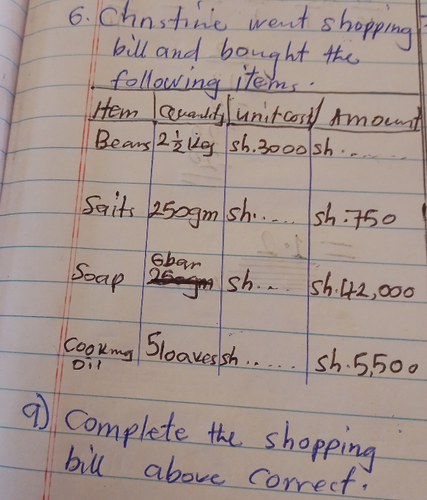 6. Christine went shopping
bill and bought the
following items.
Item Quantity unit cost Amount
Beans 2 1/2 kg sh.3000 sh......
Salts 250gm sh..... sh.750
6bar
Soap sh.... sh.42,000
Cooking oil 5loaves sh..... sh.5,500
a) Complete the shopping
bill above correct.